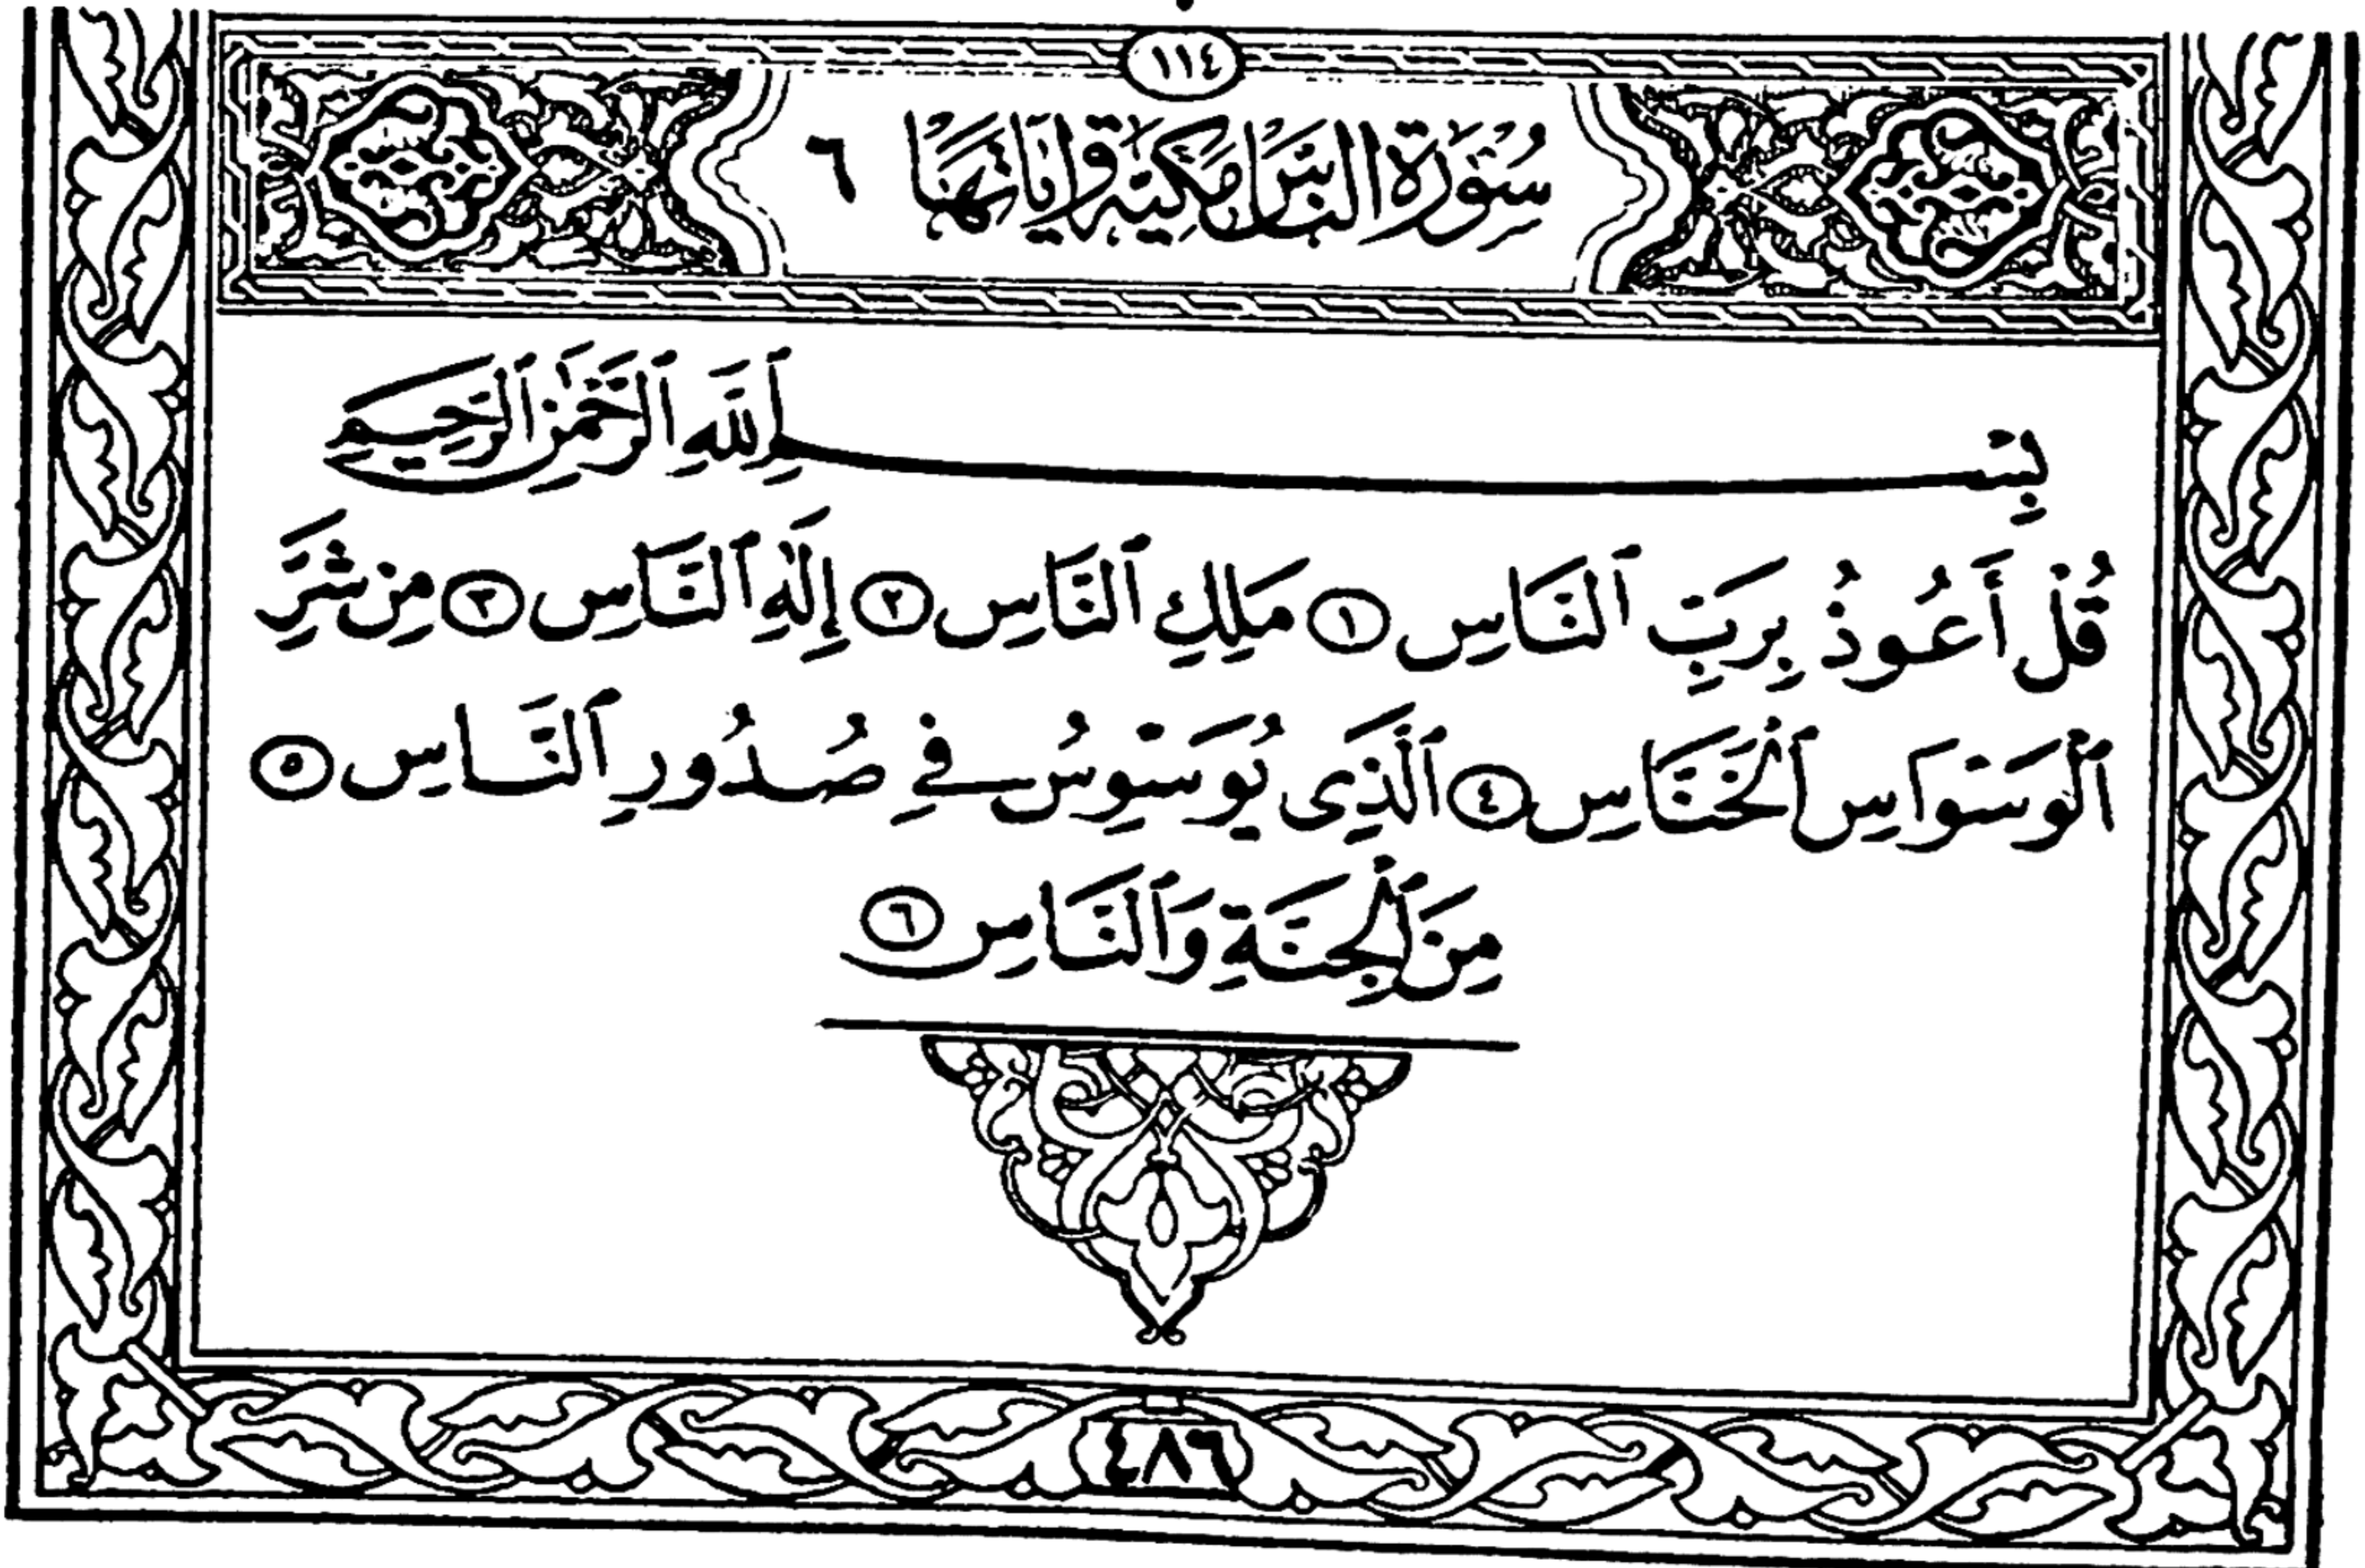 ١١٤
سُورَةُ النَّاسِ مَكِّيَّةٌ وَآيَاتُهَا ٦
بِسْمِ ٱللَّهِ ٱلرَّحْمَٰنِ ٱلرَّحِيمِ
قُلْ أَعُوذُ بِرَبِّ ٱلنَّاسِ ١ مَلِكِ ٱلنَّاسِ ٢ إِلَٰهِ ٱلنَّاسِ ٣ مِن شَرِّ
ٱلْوَسْوَاسِ ٱلْخَنَّاسِ ٤ ٱلَّذِى يُوَسْوِسُ فِى صُدُورِ ٱلنَّاسِ ٥
مِنَ ٱلْجِنَّةِ وَٱلنَّاسِ ٦
٤٨٦